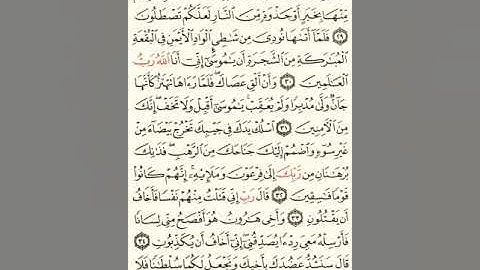 مِّنْهَا بِخَبَرٍ أَوْ جَذْوَةٍ مِّنَ النَّارِ لَعَلَّكُمْ تَصْطَلُونَ
٢٩ فَلَمَّا أَتَاهَا نُودِيَ مِن شَاطِئِ الْوَادِ الْأَيْمَنِ فِي الْبُقْعَةِ
الْمُبَارَكَةِ مِنَ الشَّجَرَةِ أَن يَا مُوسَىٰ إِنِّي أَنَا اللَّهُ رَبُّ
الْعَالَمِينَ ٣٠ وَأَنْ أَلْقِ عَصَاكَ فَلَمَّا رَآهَا تَهْتَزُّ كَأَنَّهَا
جَانٌّ وَلَّىٰ مُدْبِرًا وَلَمْ يُعَقِّبْ يَا مُوسَىٰ أَقْبِلْ وَلَا تَخَفْ إِنَّكَ
مِنَ الْآمِنِينَ ٣١ اسْلُكْ يَدَكَ فِي جَيْبِكَ تَخْرُجْ بَيْضَاءَ مِنْ
غَيْرِ سُوءٍ وَاضْمُمْ إِلَيْكَ جَنَاحَكَ مِنَ الرَّهْبِ فَذَانِكَ
بُرْهَانَانِ مِن رَّبِّكَ إِلَىٰ فِرْعَوْنَ وَمَلَإِيْهِ إِنَّهُمْ كَانُوا
قَوْمًا فَاسِقِينَ ٣٢ قَالَ رَبِّ إِنِّي قَتَلْتُ مِنْهُمْ نَفْسًا فَأَخَافُ
أَن يَقْتُلُونِ ٣٣ وَأَخِي هَارُونُ هُوَ أَفْصَحُ مِنِّي لِسَانًا
فَأَرْسِلْهُ مَعِيَ رِدْءًا يُصَدِّقُنِي إِنِّي أَخَافُ أَن يُكَذِّبُونِ ٣٤
قَالَ سَنَشُدُّ عَضُدَكَ بِأَخِيكَ وَنَجْعَلُ لَكُمَا سُلْطَانًا فَلَا